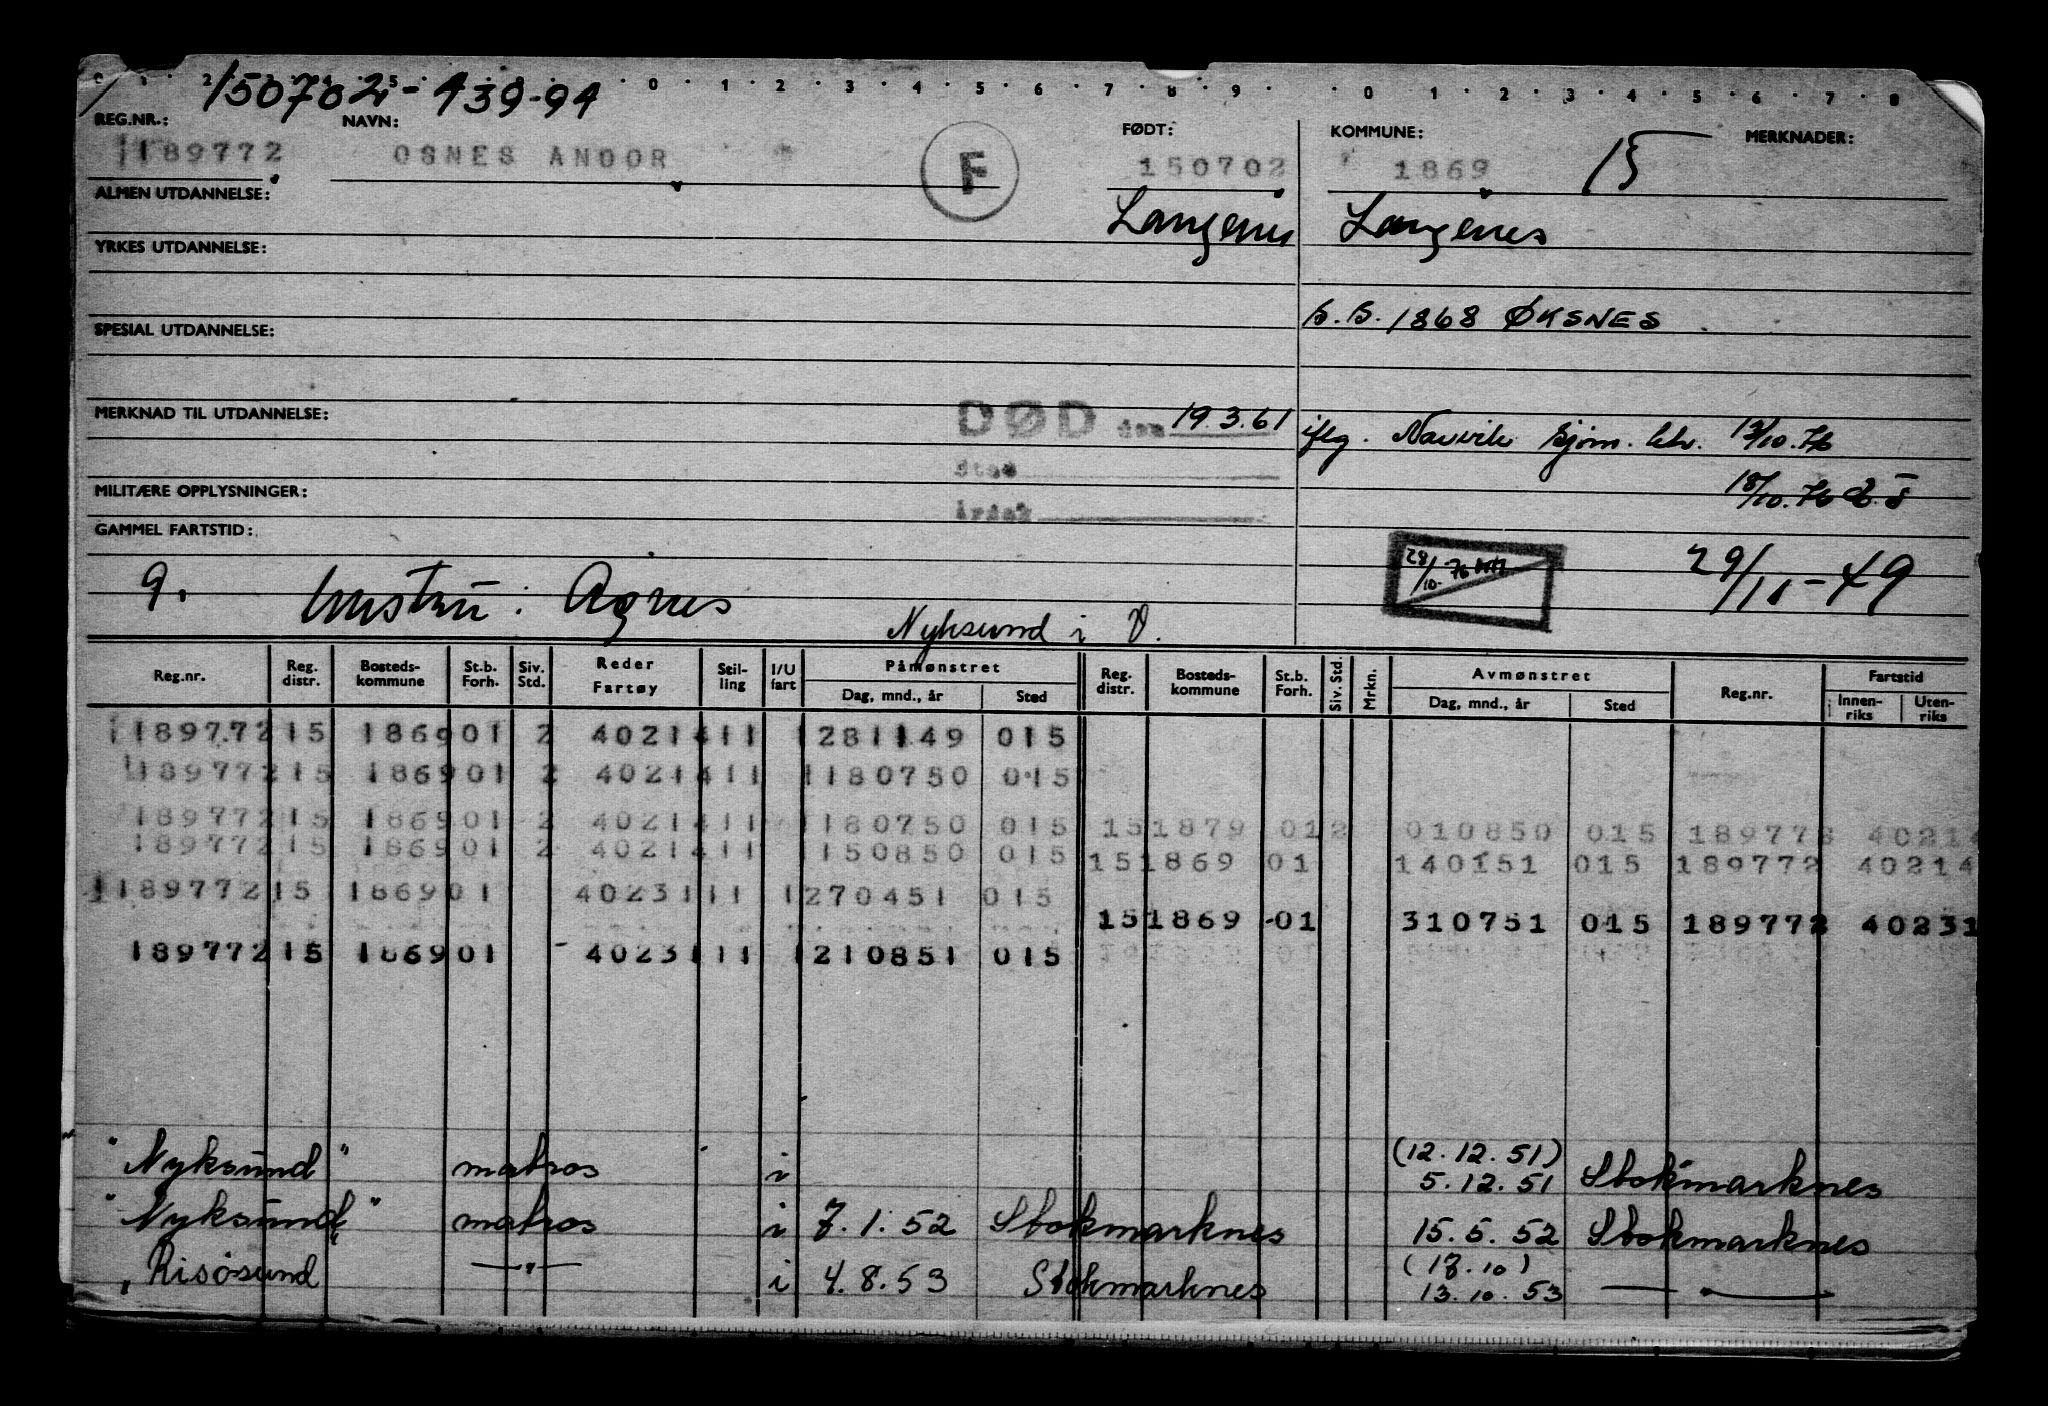 150702-439-94
REG.NR.: NAVN: FØDT: KOMMUNE: MERKNADER:
189772 OSNES ANDOR F 150702 1869 15
ALMEN UTDANNELSE: Langenes Langenes
YRKES UTDANNELSE:
S.B. 1868 ØKSNES
SPESIAL UTDANNELSE:
MERKNAD TIL UTDANNELSE: DØD den 19.3.61 iflg. Narvik sjøm. ktr. 13/10.76
Sted 18/10.76
MILITÆRE OPPLYSNINGER: Årsak
GAMMEL FARTSTID:
28/10-76 29/11-49
g. hustru: Agnes
Nyksund i V.
Reg.nr. Reg. distr. Bosteds- kommune St.b. Forh. Siv. Std. Reder Fartøy Stil- ling I/U fart Påmønstret Dag, mnd., år Sted Reg. distr. Bosteds- kommune St.b. Forh. Siv. Std. Mrkn. Avmønstret Dag, mnd., år Sted Reg.nr. Fartstid Innen- riks Uten- riks
189772 15 1869 01 2 4021411 1 281149 015
189772 15 1869 01 2 4021411 1 180750 015
189772 15 1869 01 2 4021411 1 180750 015 15 1879 01 2 010850 015 189772 40214
189772 15 1869 01 2 4021411 1 150850 015 15 1869 01 140151 015 189772 40214
189772 15 1869 01 4023111 1 270451 015
15 1869 -01 310751 015 189772 40231
189772 15 1869 01 4023111 1 210851 015
"Nyksund" matros i (12.12.51) 5.12.51 Stokmarknes
"Nyksund" matros i 7.1.52 Stokmarknes 15.5.52 Stokmarknes
"Risøsund —"— i 4.8.53 Stokmarknes (17.10) 13.10.53 —"—